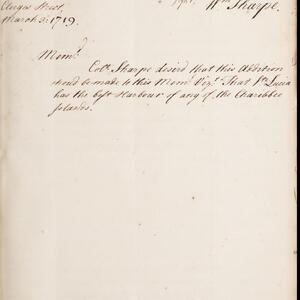 Wm Sharpe.
Clerges Street,
March 3: 1719.
Memd.
Coll. Sharpe desir'd that this Addition
should be made to this Meml. Vizt. That St. Lucia
has the best Harbour of any of the Charibbee
Islands.